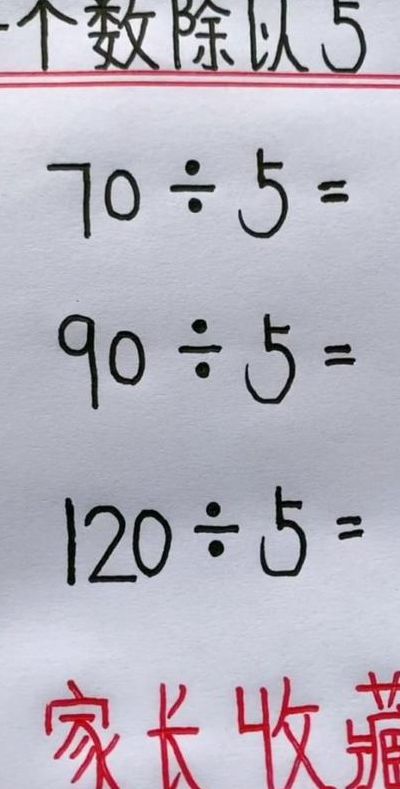 一个数除以5
70÷5=
90÷5=
120÷5=
家长收藏